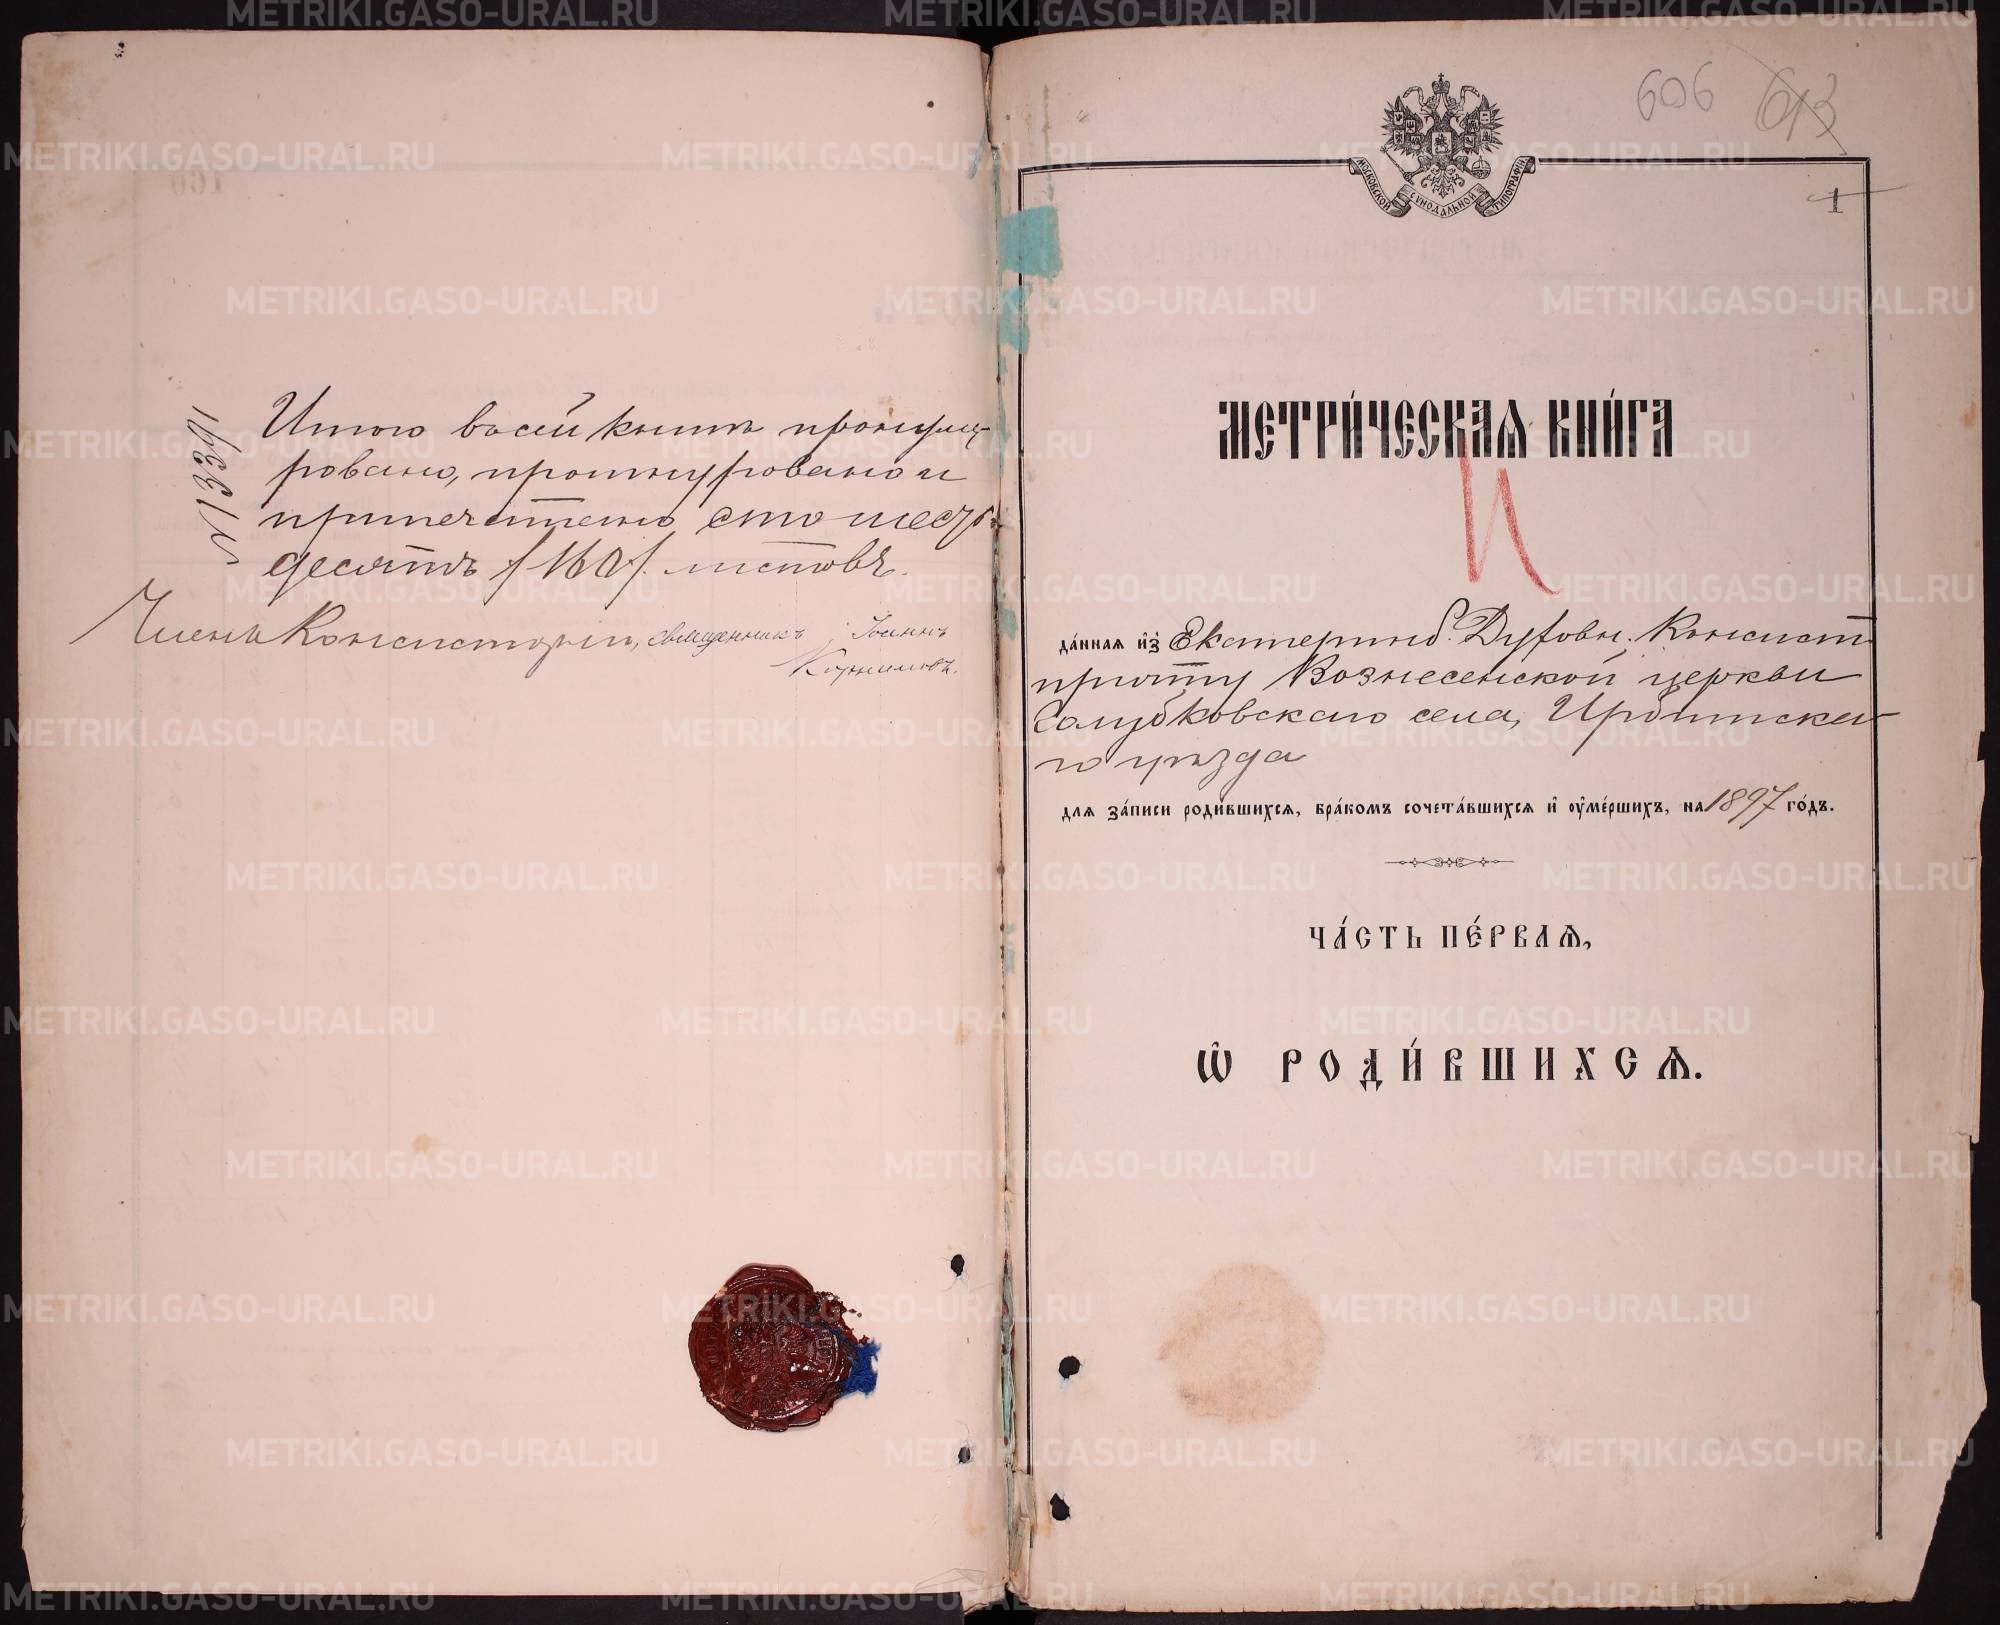 № 16339
Итого въ сей книгѣ пронумѣ-
ровано, прошнуровано и
припечатано сто шесть-
десятъ /160/ листовъ.
Членъ Консисторіи, священникъ Іоаннъ
Корниловъ.
606 613
МОСКОВСКОЙ СѴНОДАЛЬНОЙ ТИПОГРАФІИ
1
МЕТРИ́ЧЕСКАѦ КНИ́ГА
да́ннаѧ и҆з̾ Екатеринб. Духовн. Консист
причту Вознесенской церкви
Голубковскаго села, Ирбитска-
го уѣзда
длѧ за́писи роди́вшихсѧ, бра́комъ сочета́вшихсѧ и҆ оу҆ме́ршихъ, на 1897 го́дъ.
ЧА́СТЬ ПЕ́РВАѦ,
Ѽ РОДИ́ВШИХСѦ.
METRIKI.GASO-URAL.RU